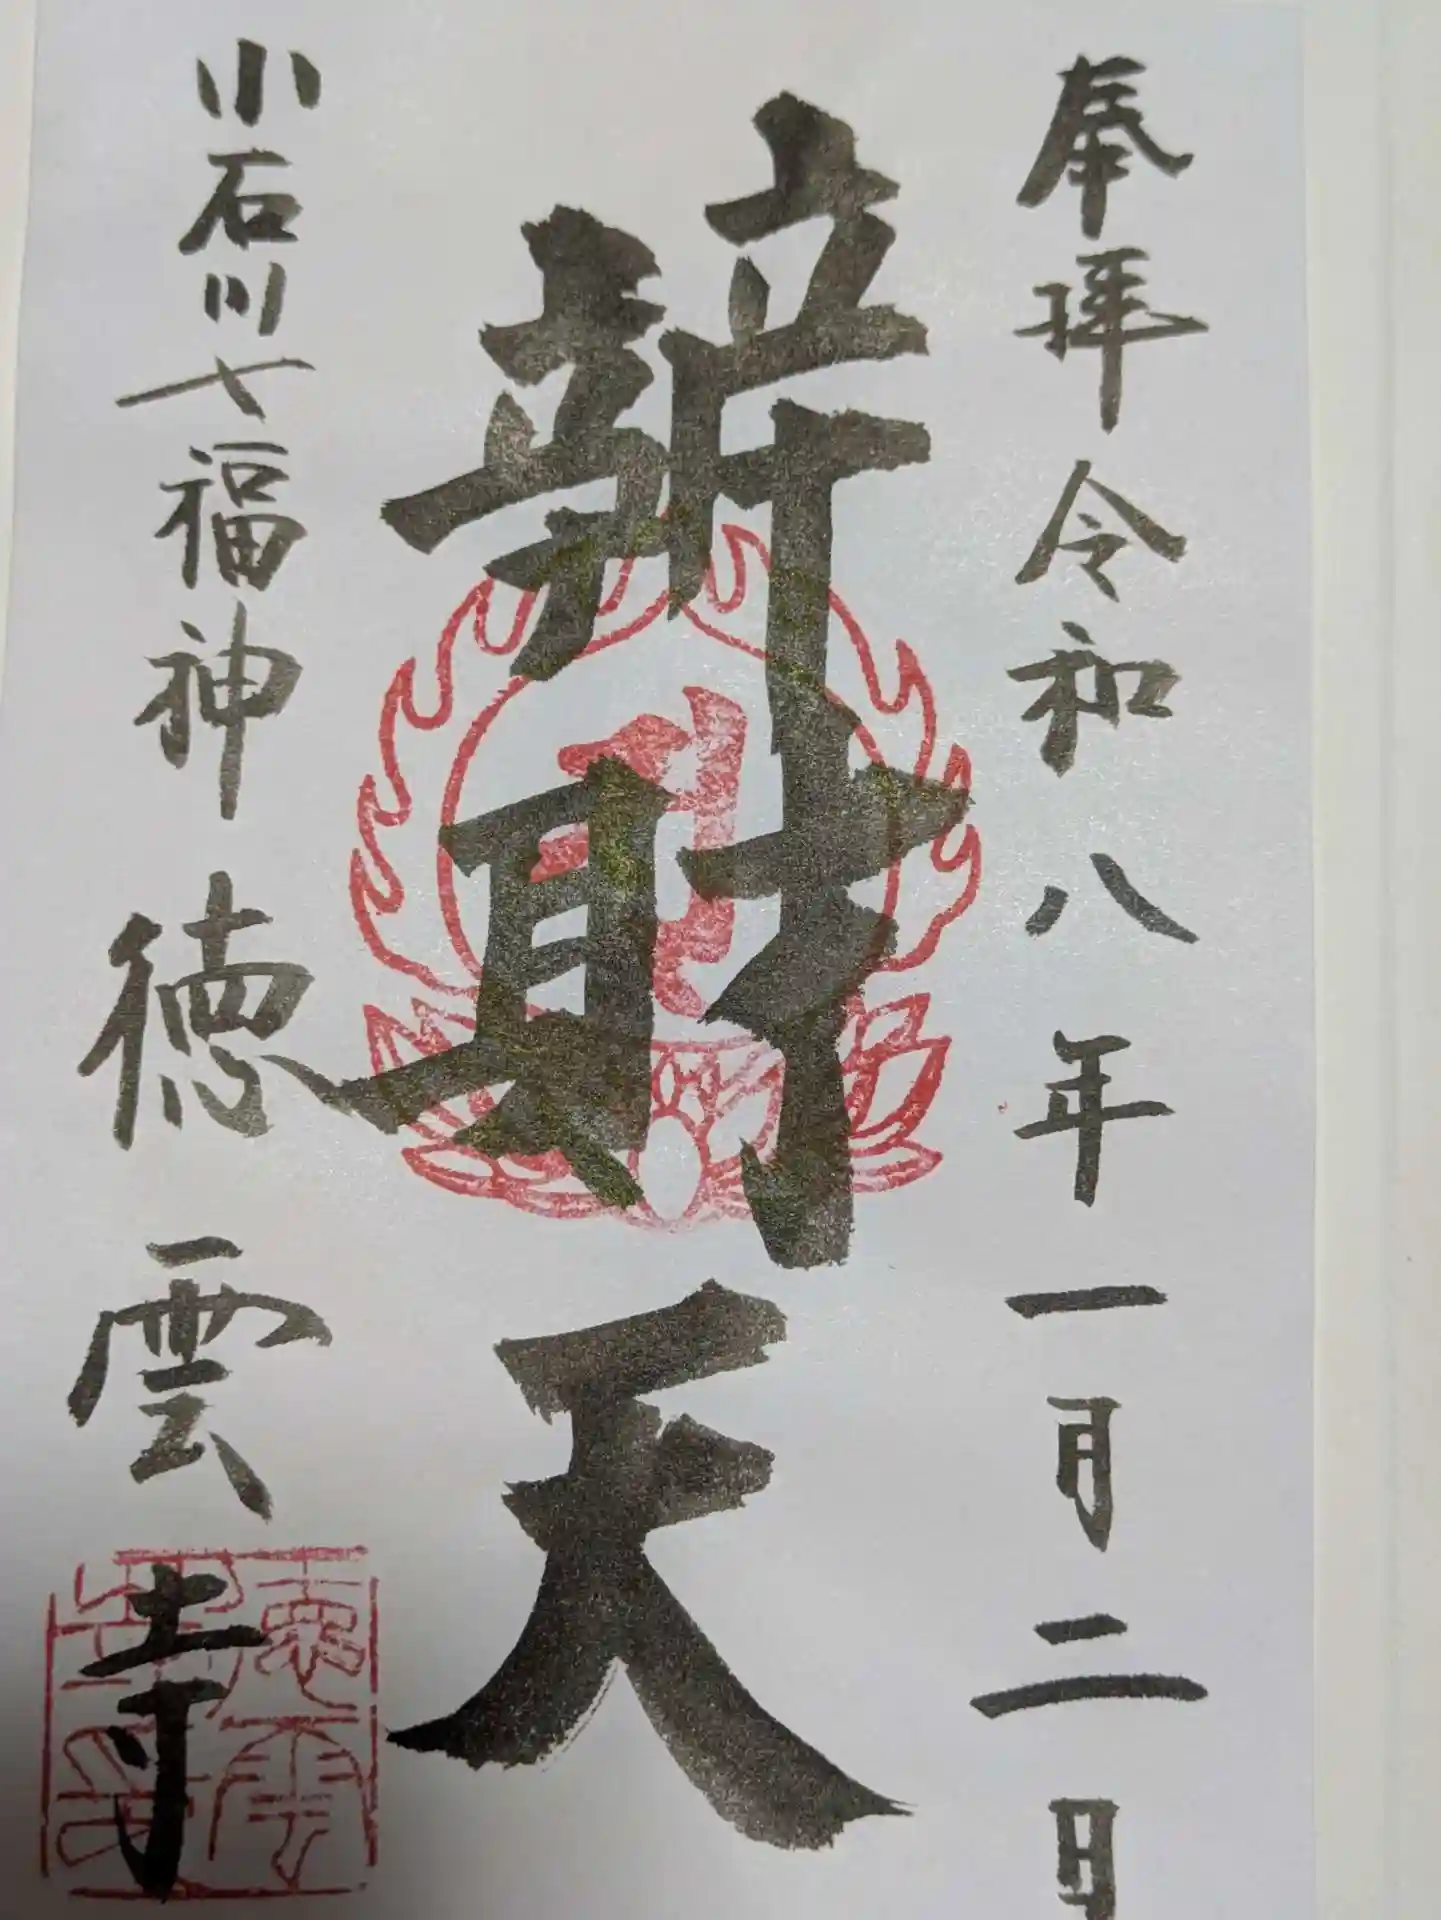 奉拝 令和八年一月二日
辨財天
小石川七福神 徳雲寺